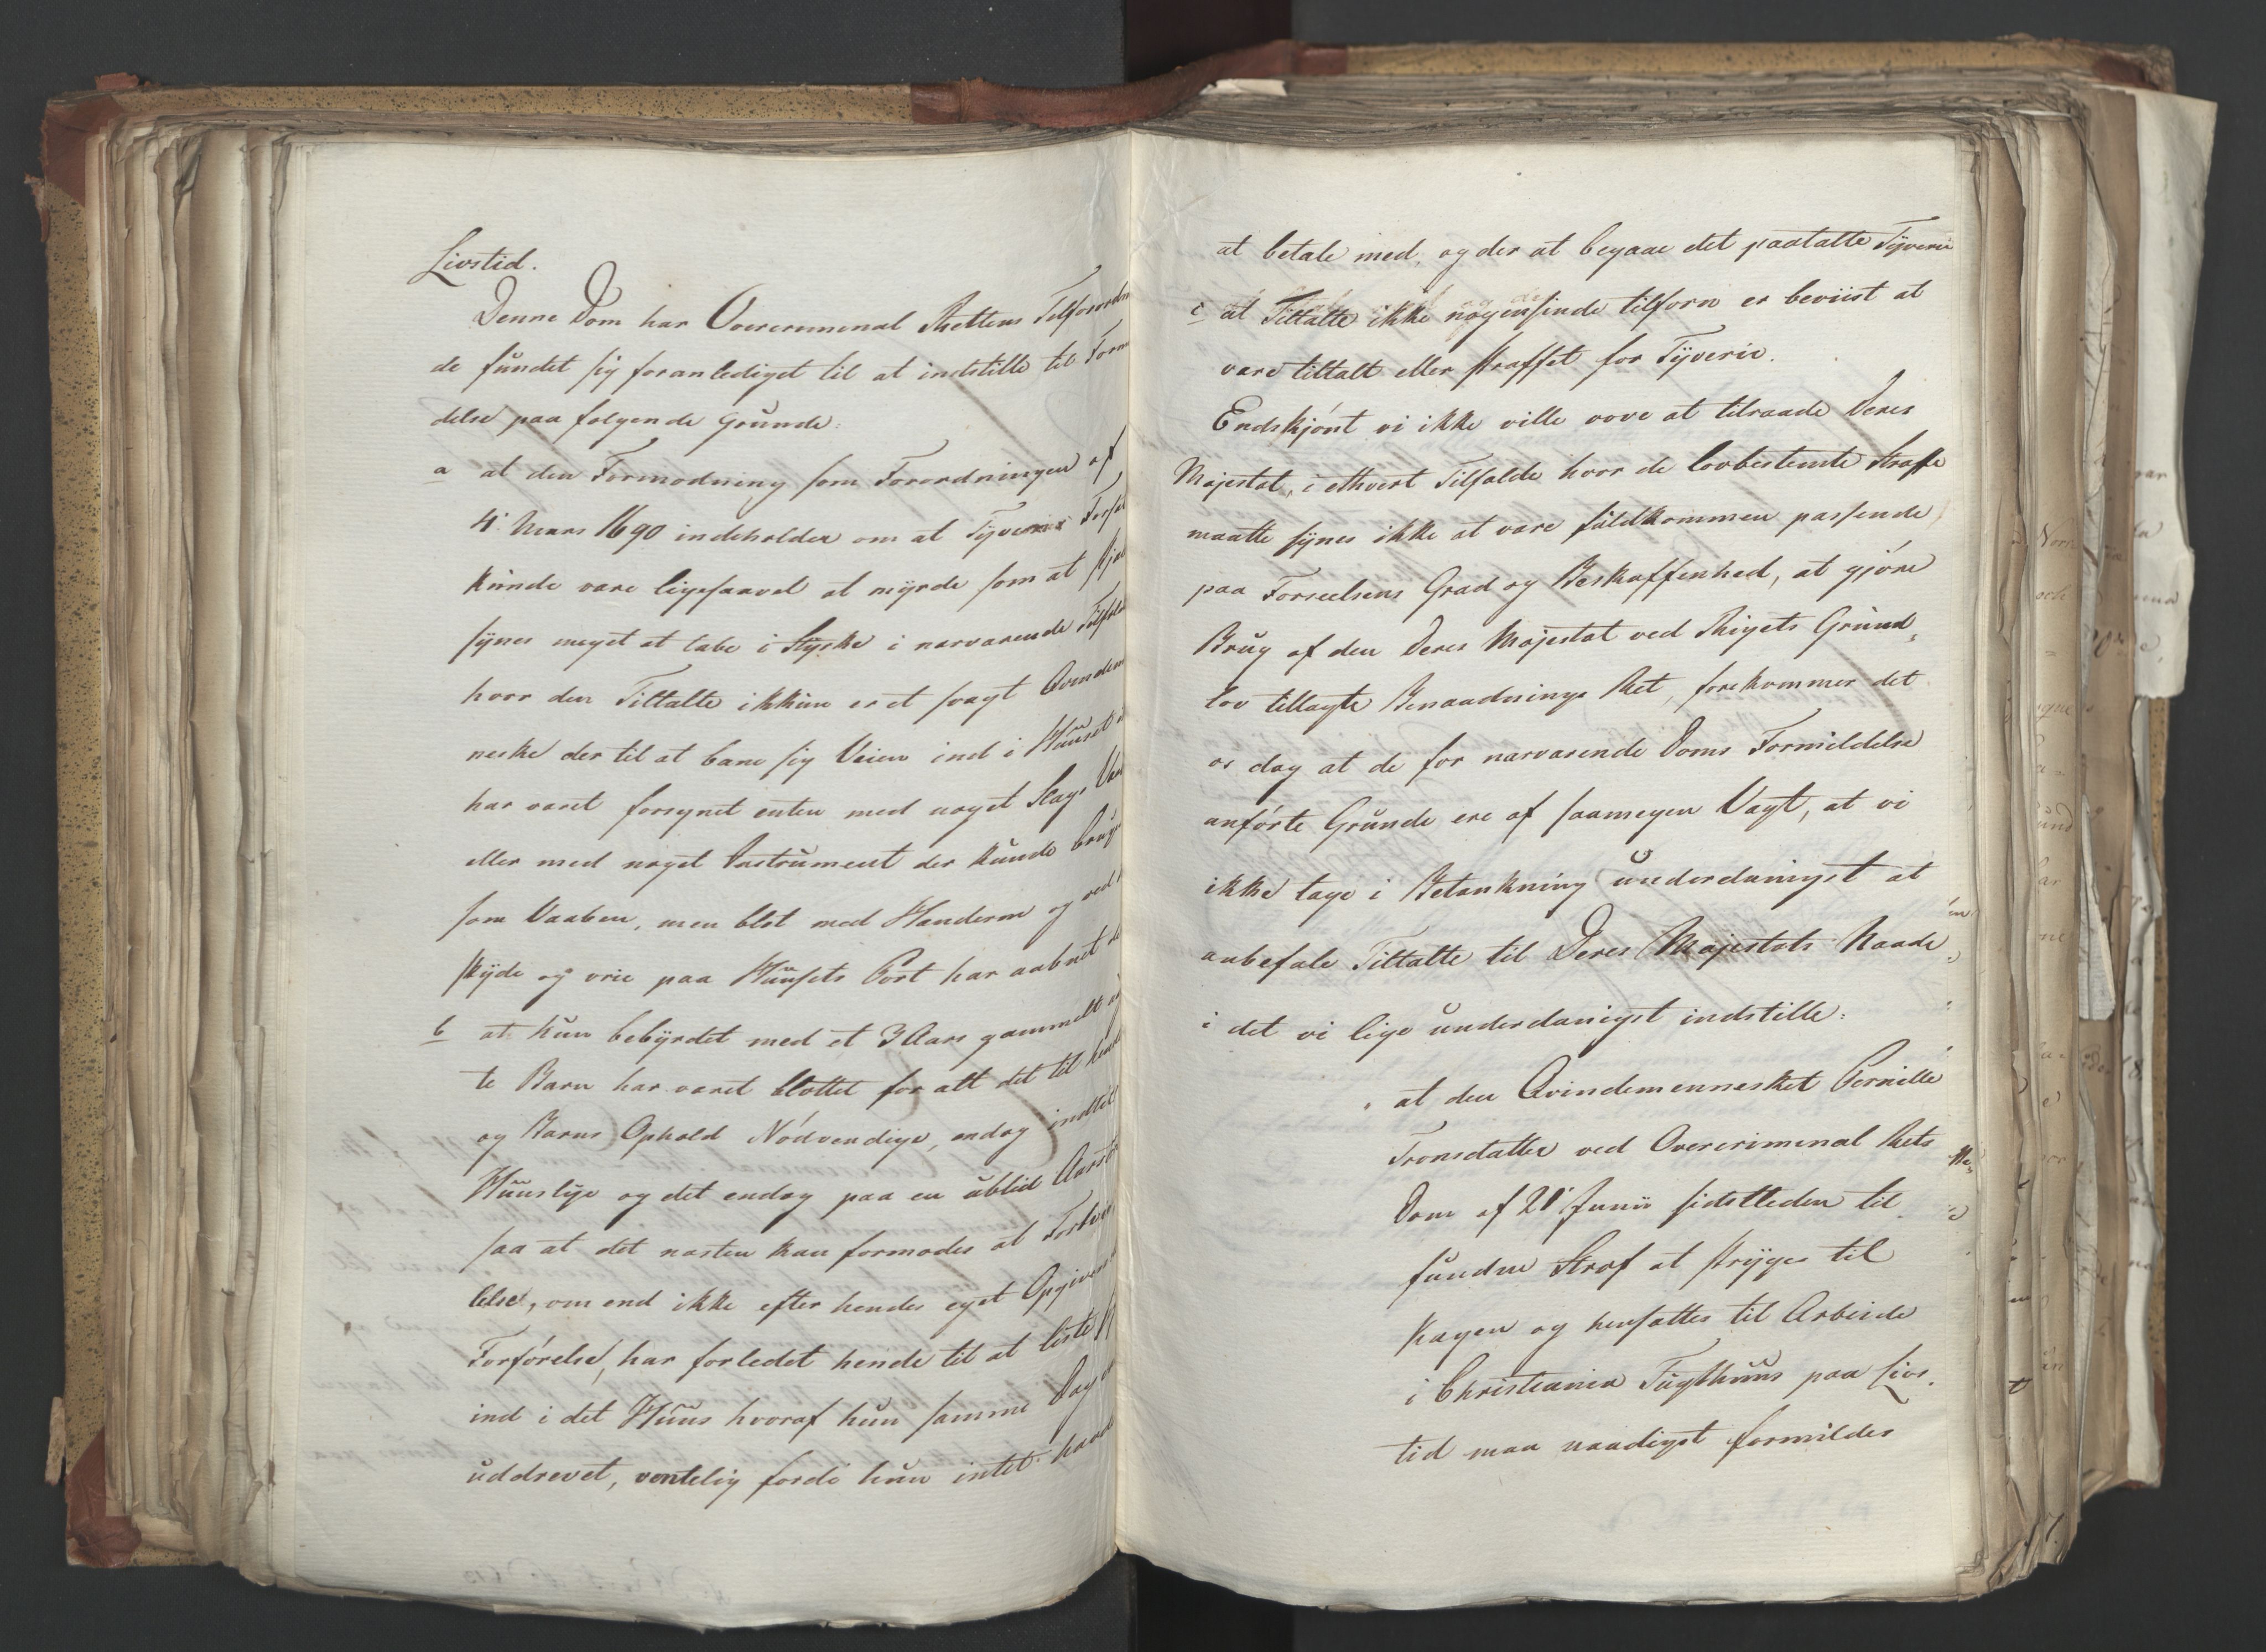 Livstid.
Denne Dom har Overcriminal Rettens Tilforordn
de fundet sig foranlediget til at indstille til Form
delse paa følgende Grunde:
a at den Formodning som Forordningen af
4 Mars 1690 indeholder om at Tyvenes Forsæt
kunde være ligesaavel at myrde som at stjæ
synes meget at tabe i Styrke i nærværende Tilfæld
hvor den Tiltalte ikkun er et svagt Qvindem
neske der til at bane sig Veien ind i Huuset i
har været forsynet enten med noget Slags Vaa
eller med noget Instrument der kunde bruge
som Vaaben, men blot med Hænderne og ved
skyde og vrie paa Huusets Port har aabnet de
b at hun bebyrdet med et 3 Aars gammelt
te Barn har været blottet for alt det til hendes
og Barns Ophold Nödvendige, endog indtil
Huuslye og det endog paa en ublid Aarsti
saa at det næsten kan formodes at Fortviv
lelse, om end ikke efter hendes eget Opgivende
Forförelse, har forledet hende til at liste sig
ind i det Huus hvoraf hun samme Dag var
uddrevet, ventelig fordi hun intet havde
at betale med, og der at begaae det paatalte Tyverie
c at Tiltalte ikke nogensinde tilforn er beviist at
være tiltalt eller straffet for Tyverie.
Endskjönt vi ikke ville vove at tilraade Deres
Majestæt, i ethvert Tilfælde hvor de lovbestemte Straffe
maatte synes ikke at være fuldkommen passende
paa Forseelsens Grad og Beskaffenhed, at gjöre
Brug af den Deres Majestæt ved Rigets Grund-
lov tillagte Benaadnings Ret, forekommer det
os dog at de for nærværende Doms Formildelse
anförte Grunde ere af saamegen Vægt, at vi
ikke tage i Betænkning underdanigst at
anbefale Tiltalte til Deres Majestæts Naade
i det vi lige underdanigst indstille:
at den Qvindemennesket Pernille
Tronsdatter ved Overcriminal Rets
Dom af 20 Junii sidstleden til
fundne Straf at stryges til
Kagen og hensættes til Arbeide
i Christiania Tugthuus paa Livs-
tid maa naadigst formildes